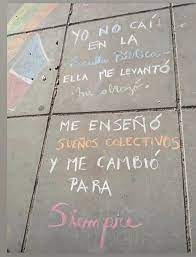 YO NO CAÍ
EN LA
Escuela Pública
ELLA ME LEVANTÓ
ME ENSEÑÓ
SUEÑOS COLECTIVOS
Y ME CAMBIÓ
PARA
Siempre